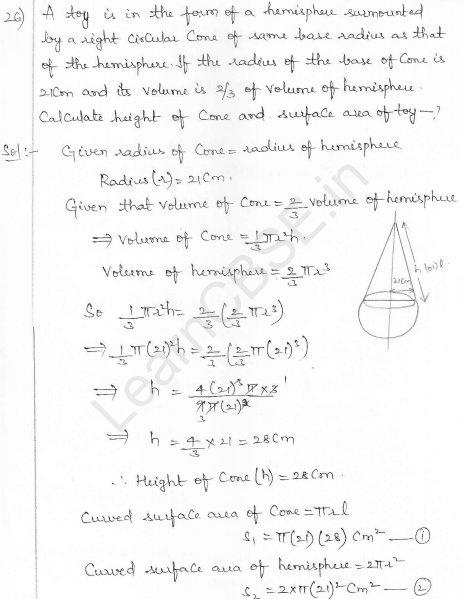 26) A toy is in the form of a hemisphere surmounted
by a right circular cone of same base radius as that
of the hemisphere. If the radius of the base of cone is
21cm and its volume is 2/3 of volume of hemisphere.
Calculate height of cone and surface area of toy—?
Sol:- Given radius of cone = radius of hemisphere
Radius(r) = 21cm.
Given that volume of cone = 2/3 volume of hemisphere
⇒ Volume of cone = 1/3 πr²h.
Volume of hemisphere = 2/3 πr³
21cm
h (or) l
So 1/3 πr²h = 2/3 (2/3 πr³)
⇒ 1/3 π(21)²h = 2/3 (2/3 π(21)³)
⇒ h = 4(21)³π×3 1 / 9π(21)² 3
⇒ h = 4/3 × 21 = 28cm
∴ Height of cone (h) = 28cm.
Curved surface area of cone = πrl
S₁ = π(21)(28) cm² — ①
Curved surface area of hemisphere = 2πr²
S₂ = 2×π(21)² cm² — ②
LearnCBSE.in